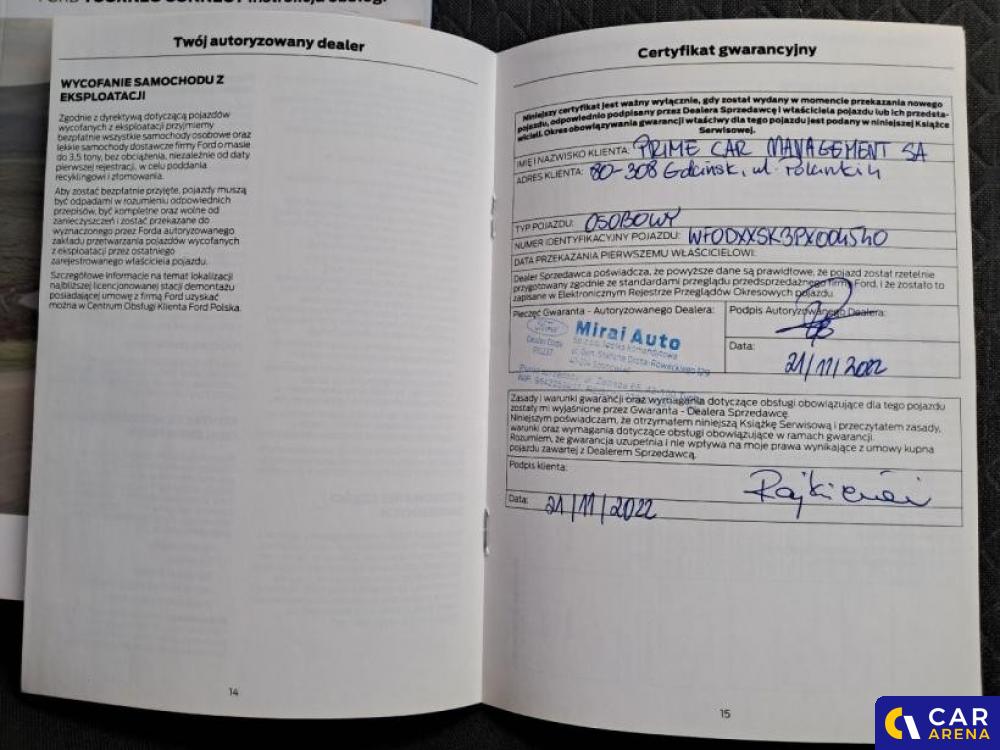 FORD TOURNEO CONNECT Instrukcja obsługi
Twój autoryzowany dealer
WYCOFANIE SAMOCHODU Z
EKSPLOATACJI
Zgodnie z dyrektywą dotyczącą pojazdów
wycofanych z eksploatacji przyjmiemy
bezpłatnie wszystkie samochody osobowe oraz
lekkie samochody dostawcze firmy Ford o masie
do 3,5 tony, bez obciążenia, niezależnie od daty
pierwszej rejestracji, w celu poddania
recyklingowi i złomowania.
Aby zostać bezpłatnie przyjęte, pojazdy muszą
być odpadami w rozumieniu odpowiednich
przepisów, być kompletne oraz wolne od
zanieczyszczeń i zostać przekazane do
wyznaczonego przez Forda autoryzowanego
zakładu przetwarzania pojazdów wycofanych
z eksploatacji przez ostatniego
zarejestrowanego właściciela pojazdu.
Szczegółowe informacje na temat lokalizacji
najbliższej licencjonowanej stacji demontażu
posiadającej umowę z firmą Ford uzyskać
można w Centrum Obsługi Klienta Ford Polska.
14
Certyfikat gwarancyjny
Niniejszy certyfikat jest ważny wyłącznie, gdy został wydany w momencie przekazania nowego
pojazdu, odpowiednio podpisany przez Dealera Sprzedawcę i właściciela pojazdu lub ich przedsta-
wicieli. Okres obowiązywania gwarancji właściwy dla tego pojazdu jest podany w niniejszej Książce
Serwisowej.
IMIĘ I NAZWISKO KLIENTA: PRIME CAR MANAGEMENT SA
ADRES KLIENTA: 80-308 Gdańsk, ul. Polanki 4
TYP POJAZDU: OSOBOWY
NUMER IDENTYFIKACYJNY POJAZDU: WF0DXXSK3PX004540
DATA PRZEKAZANIA PIERWSZEMU WŁAŚCICIELOWI:
Dealer Sprzedawca poświadcza, że powyższe dane są prawidłowe, że pojazd został rzetelnie
przygotowany zgodnie ze standardami przeglądu przedsprzedażnego firmy Ford, i że zostało to
zapisane w Elektronicznym Rejestrze Przeglądów Okresowych pojazdu.
Pieczęć Gwaranta - Autoryzowanego Dealera:
Podpis Autoryzowanego Dealera:
Mirai Auto
Sp. z o.o. Spółka Komandytowa
Dealer Code
Data:
21/11/2022
Zasady i warunki gwarancji oraz wymagania dotyczące obsługi obowiązujące dla tego pojazdu
zostały mi wyjaśnione przez Gwaranta - Dealera Sprzedawcę.
Niniejszym poświadczam, że otrzymałem niniejszą Książkę Serwisową i przeczytałem zasady,
warunki oraz wymagania dotyczące obsługi obowiązujące w ramach gwarancji.
Rozumiem, że gwarancja uzupełnia i nie wpływa na moje prawa wynikające z umowy kupna
pojazdu zawartej z Dealerem Sprzedawcą.
Podpis klienta:
Data: 21/11/2022
15
CAR
ARENA